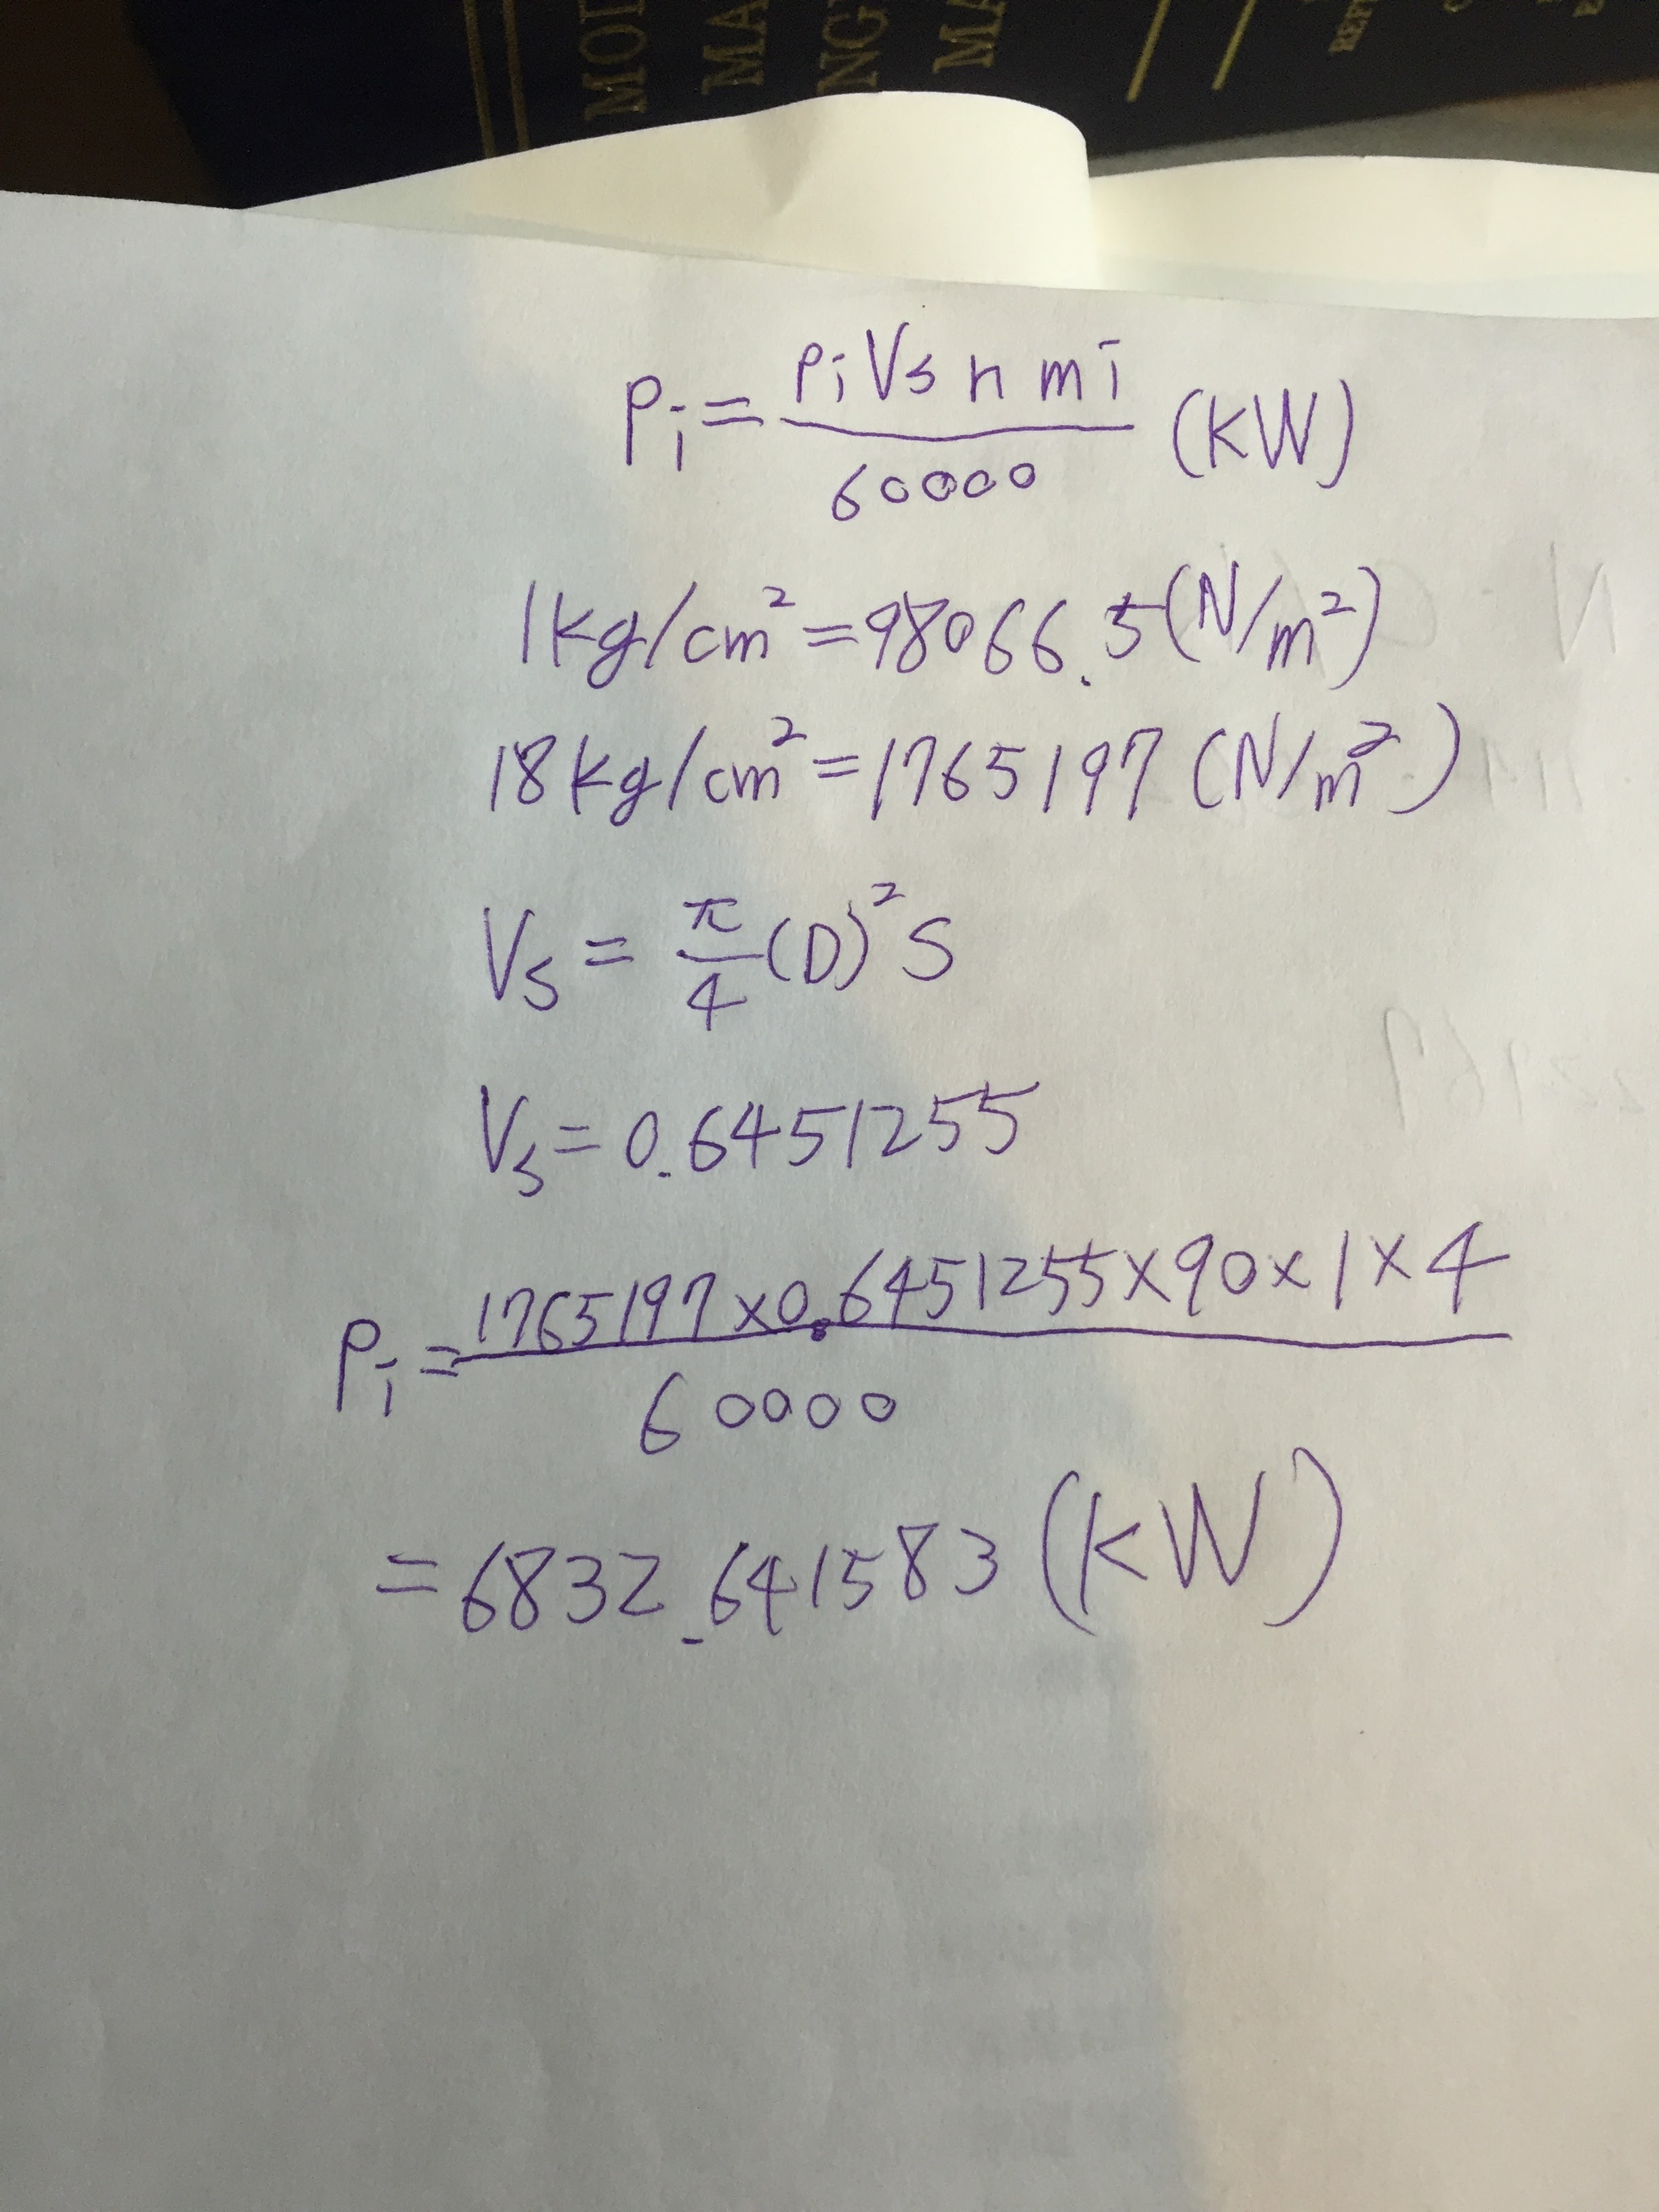 MOD
MA
NG
MA
REF
Pi = PiVs n m i / 60000 (KW)
1kg/cm² = 98066.5 (N/m²)
18kg/cm² = 1765197 (N/m²)
Vs = π/4 (D)² S
Vs = 0.6451255
Pi = 1765197 × 0.6451255 × 90 × 1 × 4 / 60000
= 6832.641583 (KW)